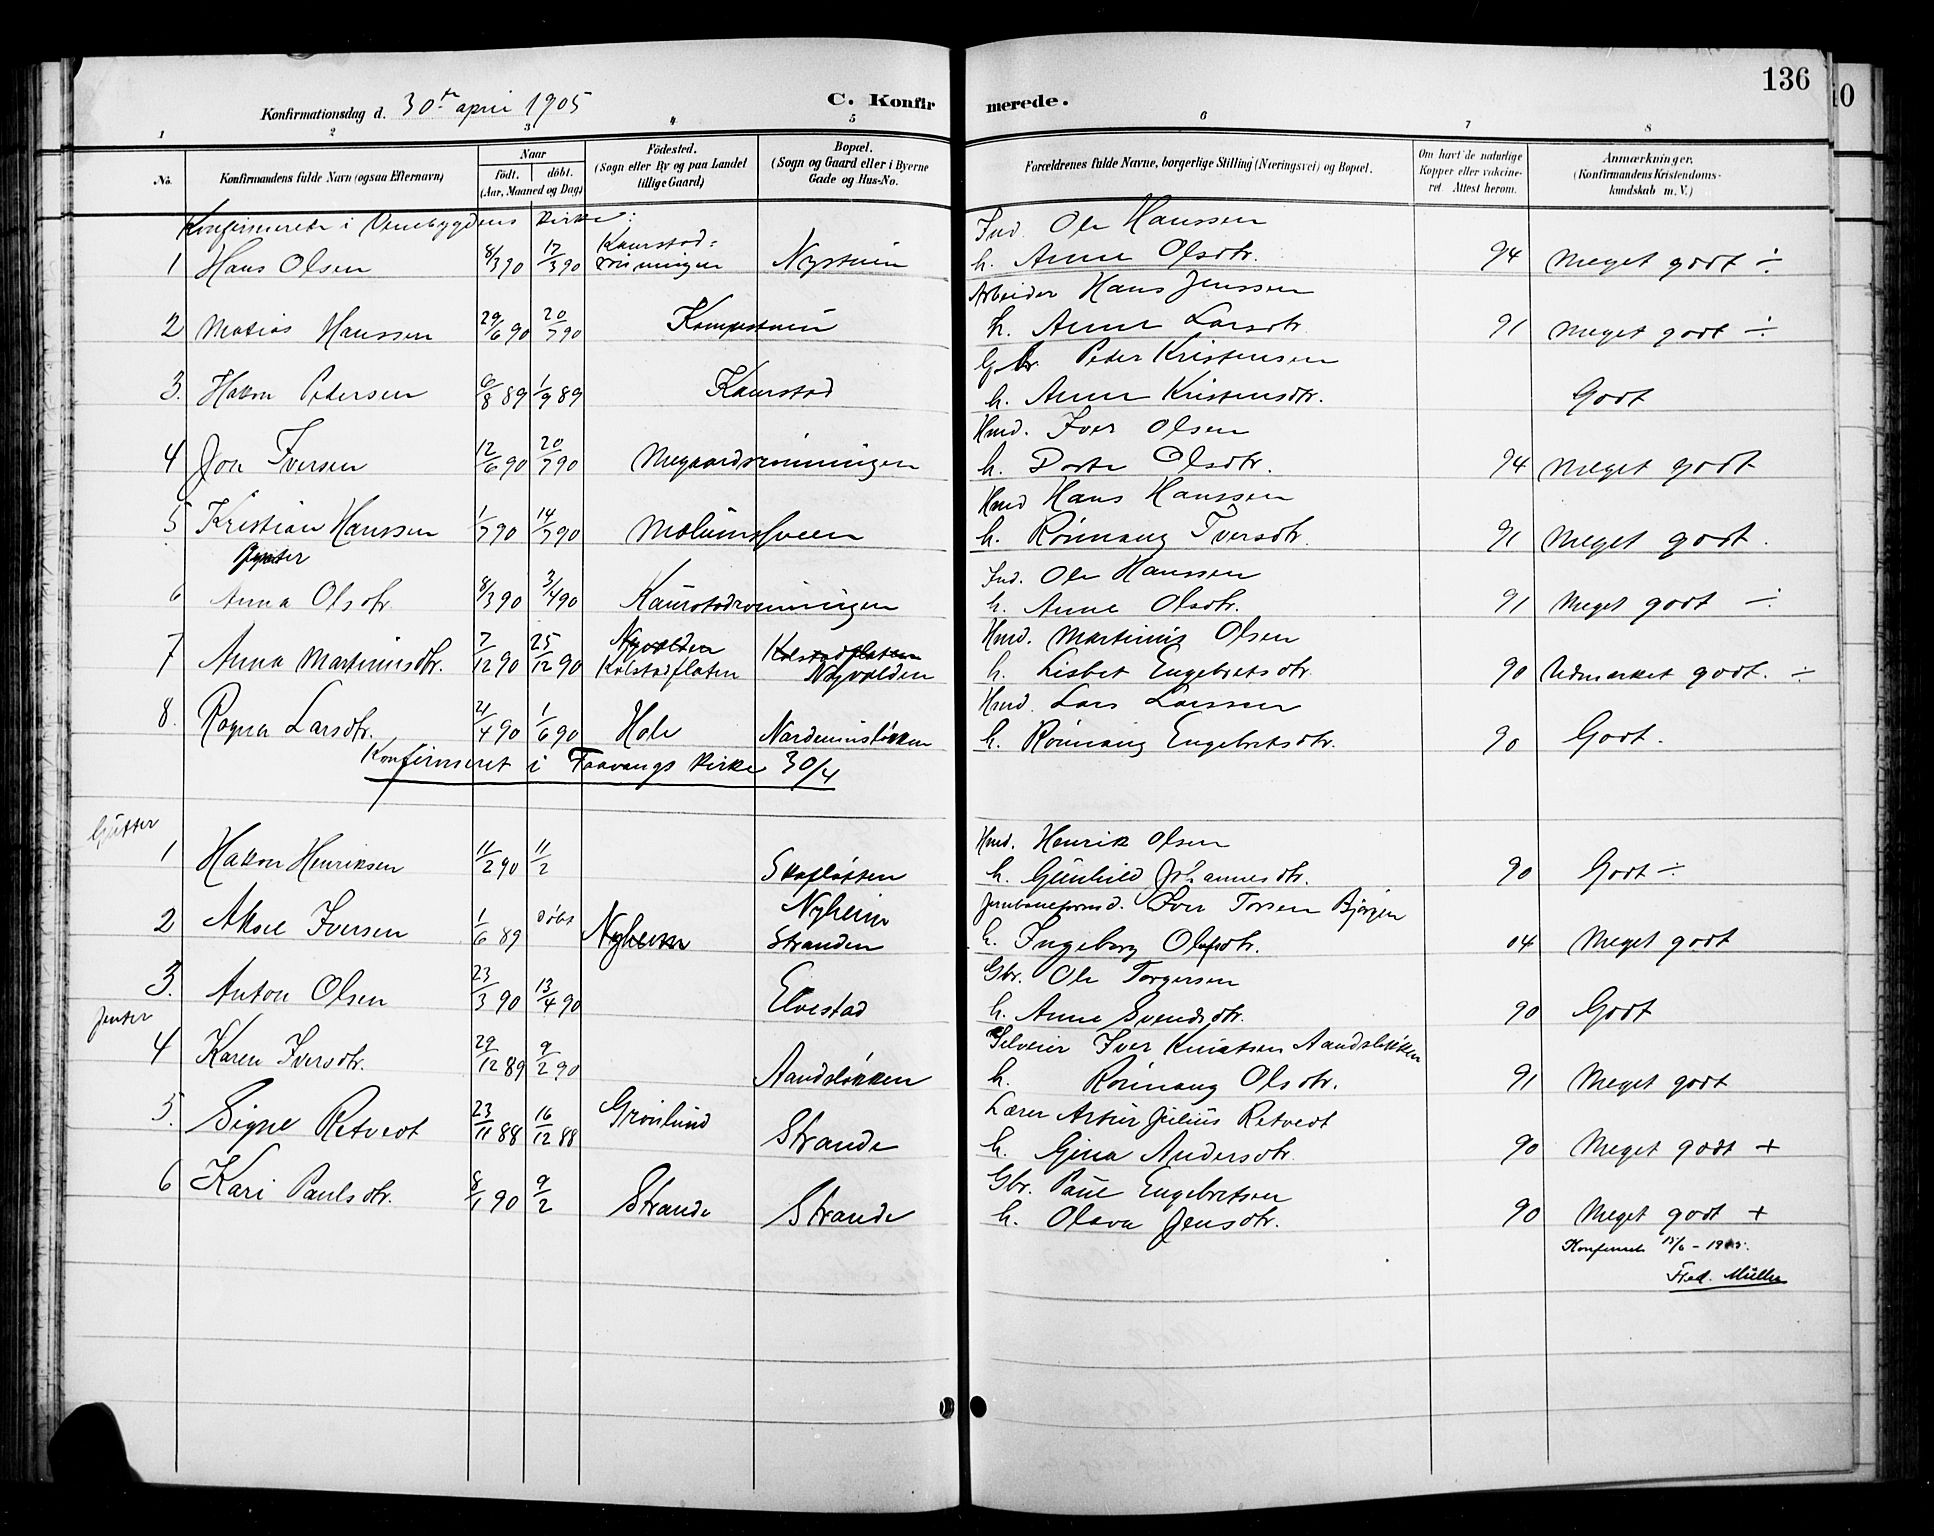 136
Konfirmationsdag d. 30te april 1905 C. Konfirmerede.
1 2 3 4 5 6 7 8
No. Konfirmandens fulde Navn (ogsaa Efternavn) Naar födt. döbt. (Aar, Maaned og Dag) Födested. (Sogn eller By og paa Landet tillige Gaard) Bopæl. (Sogn og Gaard eller i Byerne Gade og Hus-No. Forældrenes fulde Navne, borgerlige Stilling (Næringsvei) og Bopæl. Om havt de naturlige Kopper eller vakcineret. Attest herom. Anmærkninger, (Konfirmandens Kristendomskundskab m. V.)
Konfirmerede i Venebygdens Kirke:
Ind. Ole Hanssen
1 Hans Olsen 8/3 90 17/3 90 Kaurstad=rönningen Nystuen h. Anne Olsdtr. 94 Meget godt ÷
Arbeider Hans Jenssen
2 Matias Hanssen 29/6 90 20/7 90 Kampestuen h. Anne Larsdtr. 91 Meget godt ÷
Gbr. Peder Kristensen
3. Hakon Pedersen 6/8 89 1/9 89 Kaurstad h. Anne Kristensdtr. Godt
Hmd. Iver Olsen
4 Jon Iversen 12/6 90 20/7 90 Megaardsrönningen h. Dorte Olsdtr. 94 Meget godt
Hmd Hans Hanssen
5 Kristian Hanssen 1/7 90 14/7 90 Molumsveen h. Rönnaug Iversdtr. 91 Meget godt.
Jenter
Ind. Ole Hanssen
6 Anna Olsdtr. 8/3 90 3/4 90 Kaurstadrönningen h. Anne Olsdtr. 91 Meget godt ÷
Hmd. Martinus Olsen
7 Anna Martinusdtr. 7/12 90 25/12 90 Nyvolden Kolstadflaten Kolstadflaten Nyvolden h. Lisbet Engebretsdtr. 90 Udmærket godt. ÷
Hmd. Lars Larssen
8. Ragna Larsdtr. 21/4 90 1/6 90 Hole Nordrumsløkken h. Rönnaug Engebretsdtr. 90 Godt.
Konfirmeret i Faavangs Kirke 30/4
Gutter
Hmd. Henrik Olsen
1 Hakon Henriksen 11/2 90 11/2 Skofløtten h. Gunhild Johannesdtr. 90 Godt ÷
Jernbaneformd. Iver Torsen Bjørgen
2 Aksel Iversen 1/6 89 döbt Nyheim Nyheim Stranden h. Ingeborg Olufsdtr. 04 Meget godt
Gbr. Ole Torgersen
3. Anton Olsen 23/3 90 13/4 90 Elvestad h. Anne Svendsdtr. 90 Godt
Jenter
Selveier Iver Knutsen Aandsløkken
4 Karen Iversdtr. 29/12 89 9/2 90 Aandsløkken h. Rönnaug Olsdtr. 91 Meget godt
Lærer Artur Julius Retvedt
5. Signe Retvedt 23/11 88 16/12 88 Grønlund Strande h. Gina Andersdtr. 90 Meget godt +
Gbr. Paul Engebretsen
6 Kari Paulsdtr. 8/1 90 9/2 Strande Strande h. Olava Jensdtr. 90 Meget godt +
Konfereret 15/6 - 1905.
Fred. Müller